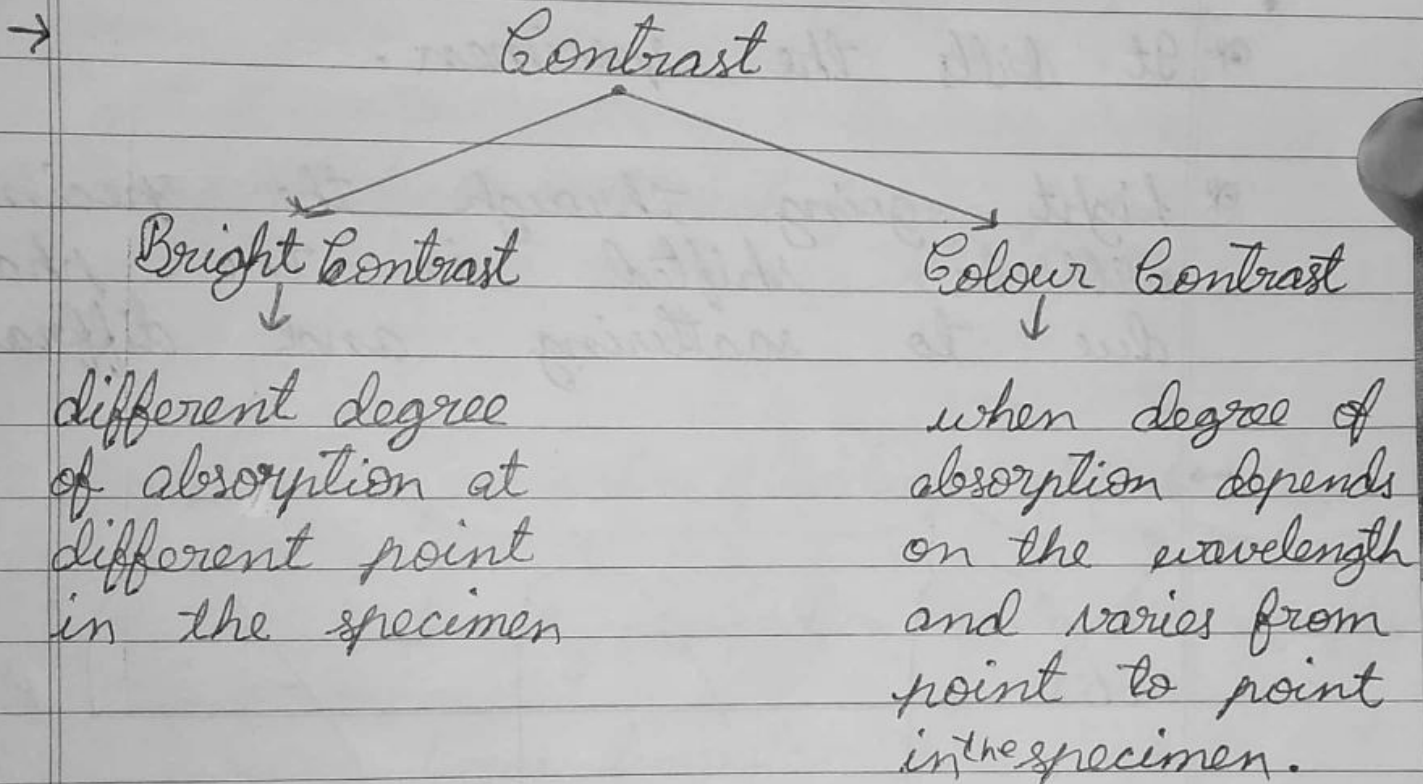 → Contrast
Bright Contrast
↓
different degree
of absorption at
different point
in the specimen
Colour Contrast
↓
when degree of
absorption depends
on the wavelength
and varies from
point to point
in the specimen.